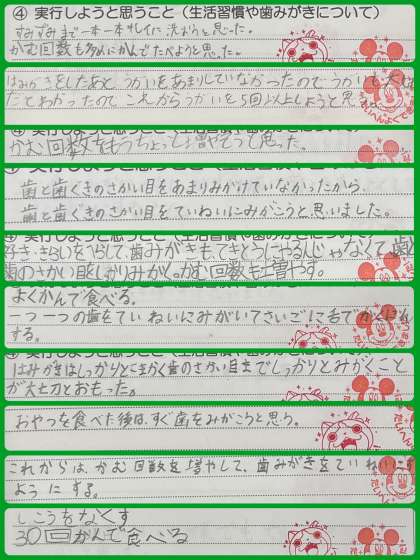 ④ 実行しようと思うこと（生活習慣や歯みがきについて）
すみずみまで一本一本キレイに洗おうと思った。
かむ回数も多めにかんでたべようと思った。
はみがきをしたあと うがいをあまりしていなかったので うがいも大
たとわかったので これからうがいを5回以上しようと思
④ 実行しようと思うこと（生活習慣や歯みがきについて）
かむ回数をもうちょっと増やそうと思った。
歯と歯ぐきのさかい目をあまりみがけていなかったから、
歯と歯ぐきのさかい目をていねいにみがこうと思いました。
④ 実行しようと思うこと（生活習慣や歯みがきについて）
好き・きらいをへらして、歯みがきも、てきとうにやるんじゃなくて 歯
歯のさかい目をしっかりみがく。かむ回数も増やす。
よくかんで食べる。
一つ一つの歯をていねいにみがいてさいごに舌で
する。
④ 実行しようと思うこと（生活習慣や歯みがきについて）
はみがきはしっかりとこまかく歯のさかい目までしっかりとみがくこと
が大切とおもった。
おやつを食べた後は、すぐ歯をみがこうと思う。
これからは、かむ回数を増やして、歯みがきをていねいにす
ようにする。
しこうをなくす
30回かんで食べる